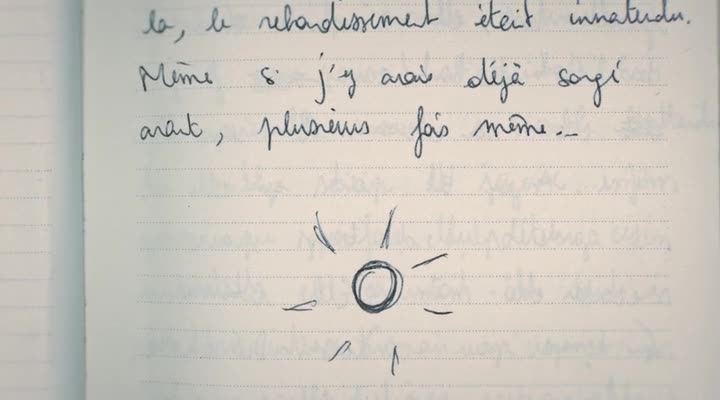 la, le rebondissement était inattendu.
Même si j'y avais déjà songé
avant, plusieurs fois même...